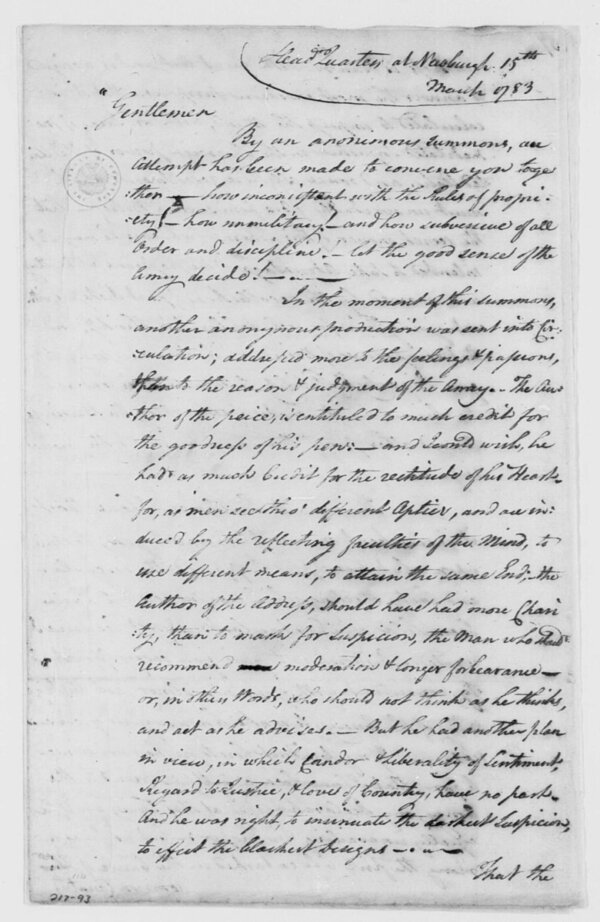 Head Quarters at Newburgh 15th
March 1783
"Gentlemen
By an anonymous summons, an
attempt has been made to convene you toge
ther — how inconsistent with the Rules of propri-
ety! — how unmilitary! — and how subversive of all
Order and discipline! — let the good sense of the
Army decide! — . —
In the moment of this summons,
another anonymous production was sent into Cir-
culation; addressed more to the feelings & passions,
than to the reason & judgment of the Army. — The Au-
thor of the peice, is entituled to much credit for
the goodness of his pen: — and I could wish, he
had as much Credit for the rectitude of his Heart —
for, as men see thro' different Optics, and are in-
duced by the reflecting faculties of the Mind, to
use different means, to attain the same End; the
Author of the Address, should have had more Chari-
ty, than to mark for Suspicion, the Man who should
recommend moderation & longer forbearance —
or, in other Words, who should not think as he thinks,
and act as he advises. — But he had another plan
in view, in which Candor & liberality of Sentiment,
Regard to Justice, & love of Country, have no part.
And he was right, to insinuate the darkest Suspicion,
to effect the blackest designs — . —
That the
217-93